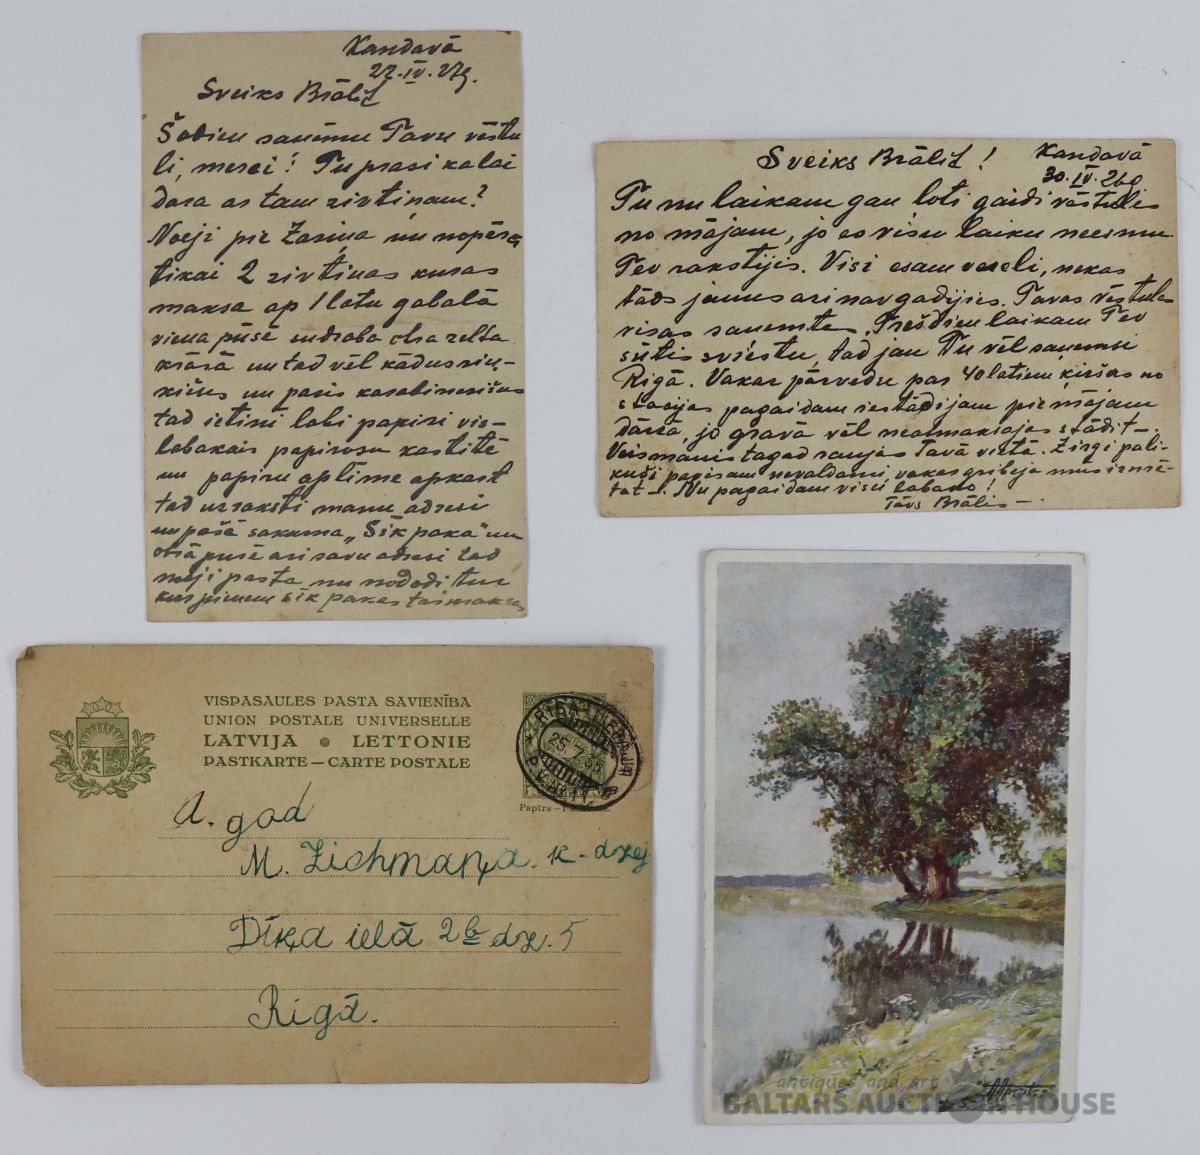 Kandavā
27.IV.27g.
Sveiks Brālit
Šodien saņēmu Tavu vēstu
li, merci! Tu prasi kā lai
dara ar tam zivtiņam?
Noej pie Zariņa un nopērc
tikai 2 zivtiņas kuras
maksa ap 1 latu gabalā
viena pusē sudraba otra zelta
krāsā un tad vēl kādus riņ-
ķišus un pāris karabinerišus
tad ietini labi papiri vis-
labakais papirosu kastitē
un papiru aplīme apkārt
tad uzraksti manu adresi
un pašā sakuma „Sīkpaka" un
otrā pusē ari savu adresi tad
ej pasta un nododi tur
kur pieņem sīkpakas tas maksas
Sveiks Brālit!
Kandavā
30.IV.26g
Tu nu laikam gan ļoti gaidi vēstules
no mājam, jo es visu laiku neesmu
Tev rakstijis. Visi esam veseli, nekas
tāds jauns ari nav gadijies. Tavas vēstules
visas saņemtas. Trešdien laikam Tev
sūtis sviestu, tad jau Tu vēl saņemsi
Rigā. Vakar pārvedu par 40 latiem ķiršus no
stacijas pagaidam iestādijam pie mājam
dārzā, jo gravā vēl neatmaksajas stādit.
Veismanis tagad Tavā vietā. Zirgi pali-
kuši pagaisam nevaldami, vakar gribeja mūs izmē-
tat. Nu pagaidam visu labako!
Tāvs Brālis
VISPASAULES PASTA SAVIENĪBA
UNION POSTALE UNIVERSELLE
LATVIJA LETTONIE
PASTKARTE — CARTE POSTALE
RIGA
25.7.35
Papirs –
A. god
M. Zichmaņa. k-dzej
Dīķa ielā 2b dz. 5
Rigā.
antiques and art
BALTARS AUCTION HOUSE